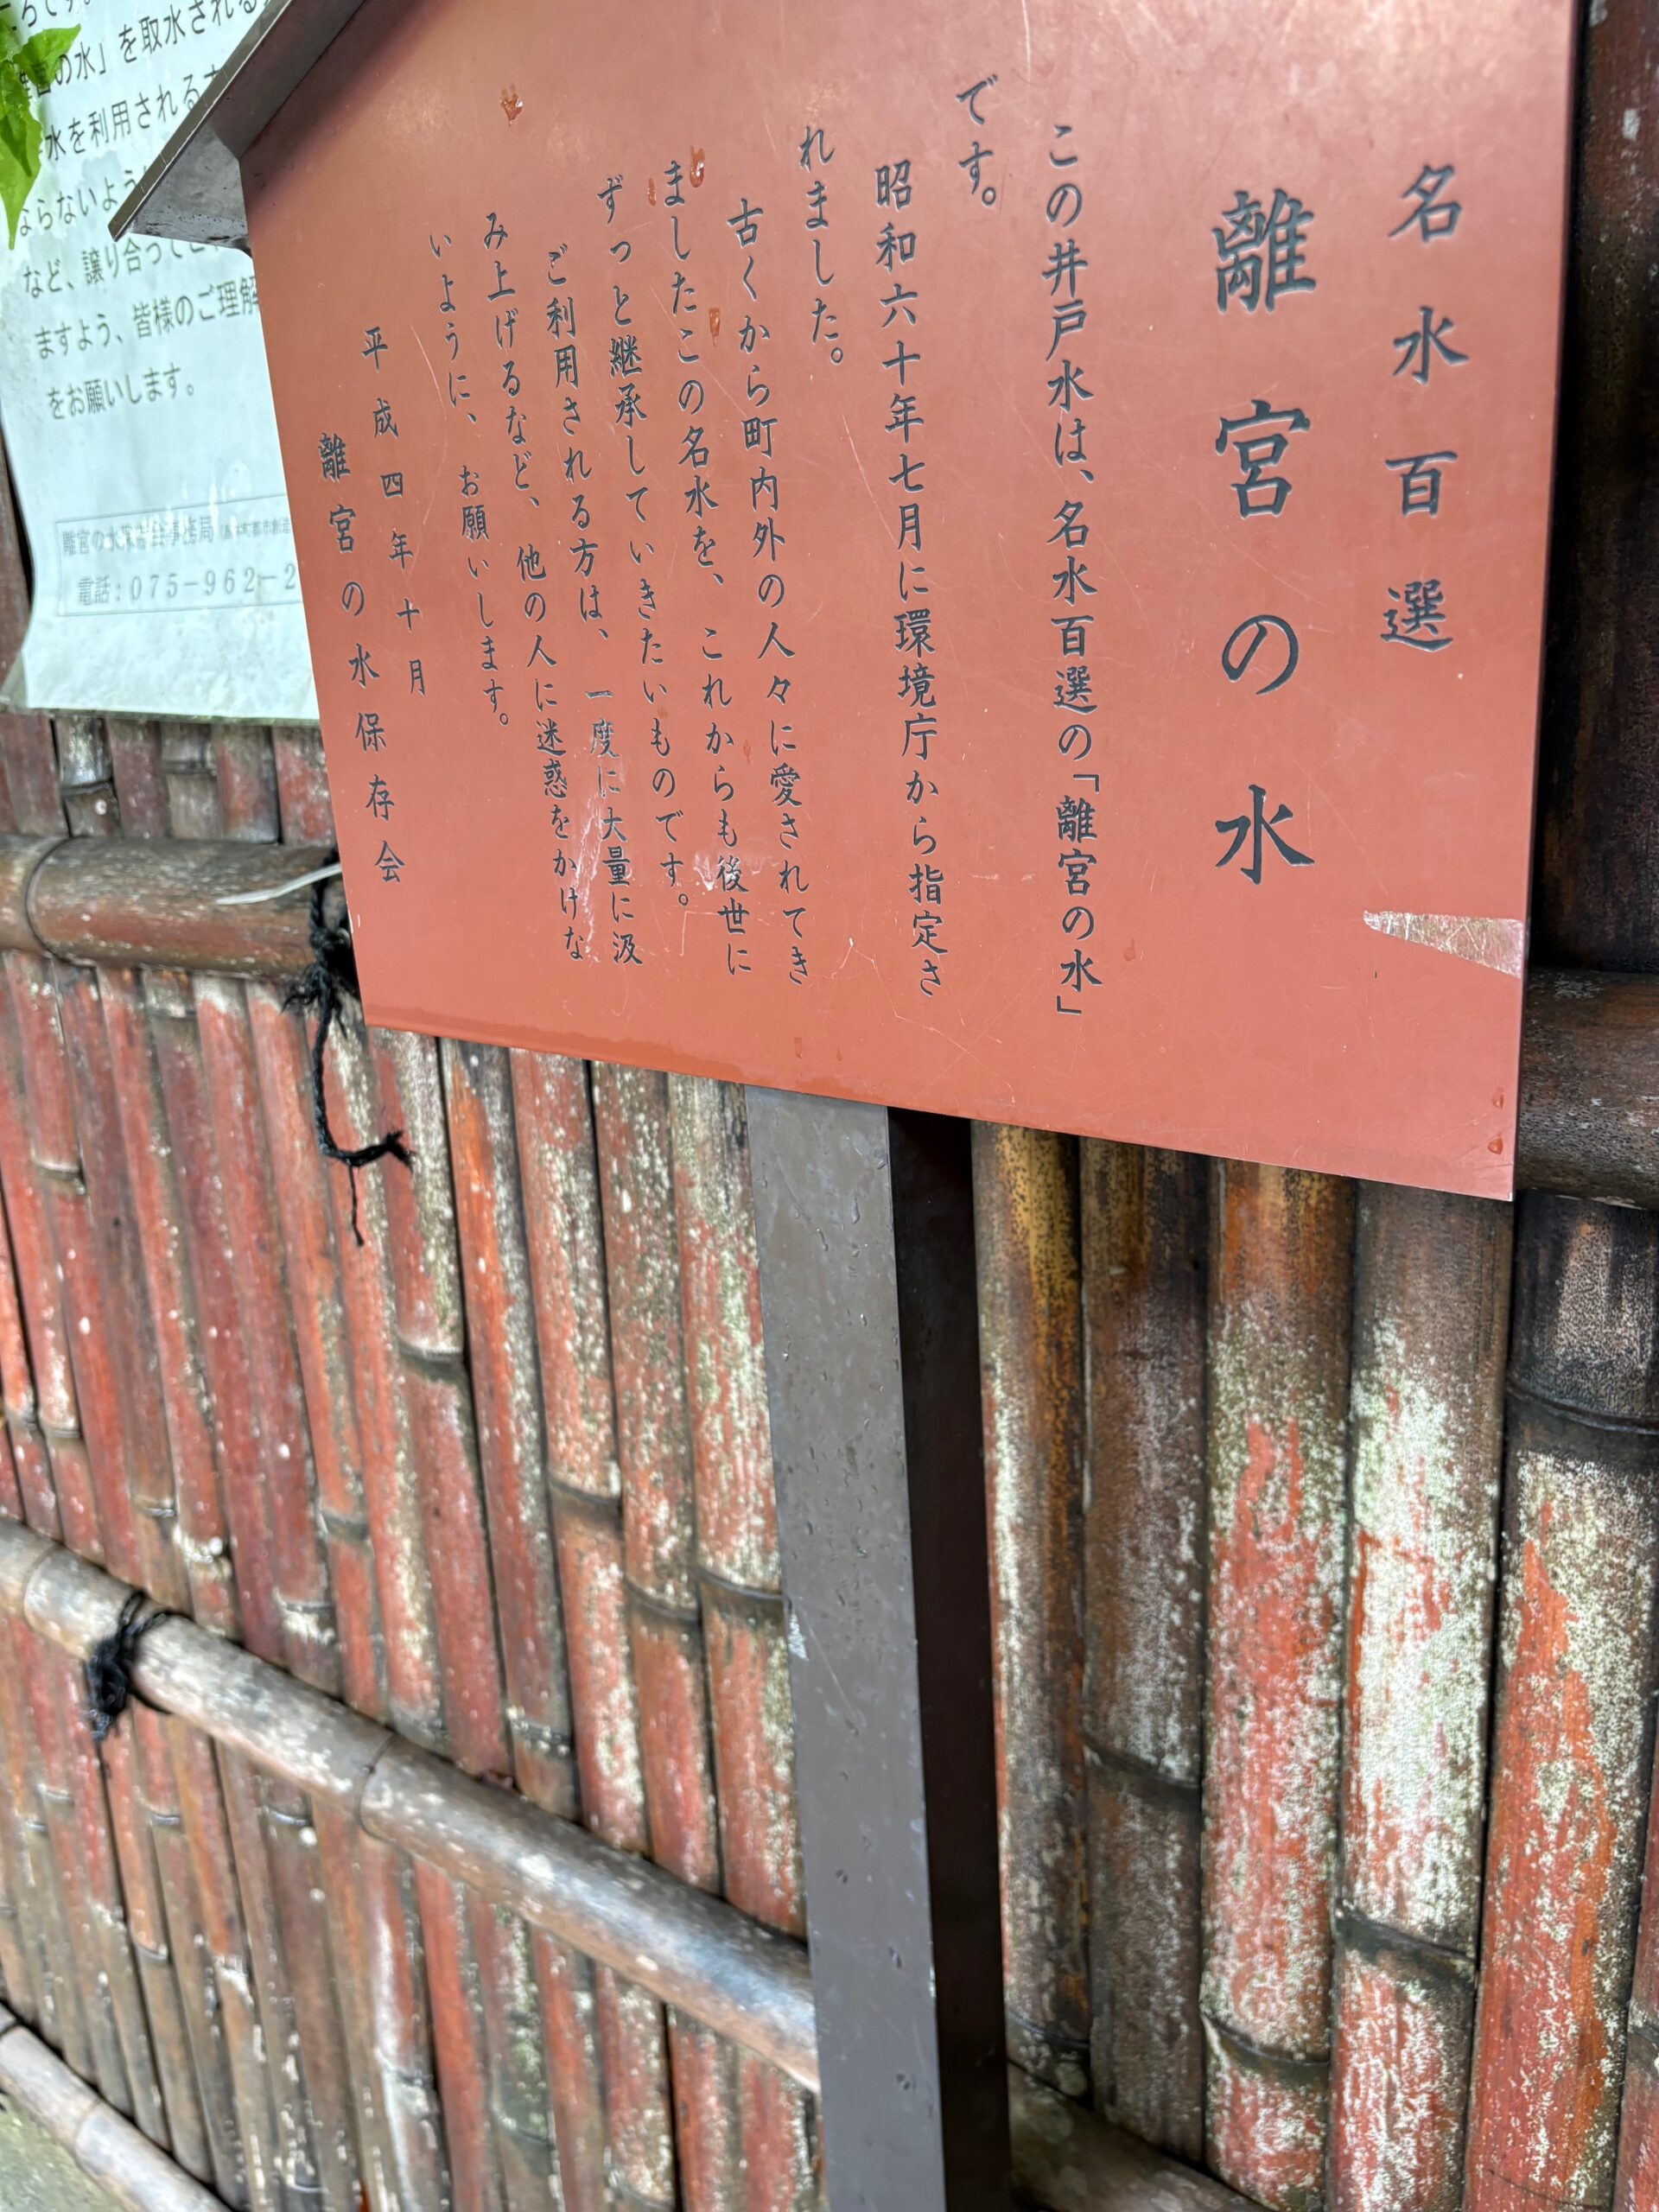 名水百選
離宮の水
この井戸水は、名水百選の「離宮の水」
です。
昭和六十年七月に環境庁から指定さ
れました。
古くから町内外の人々に愛されてき
ましたこの名水を、これからも後世に
ずっと継承していきたいものです。
ご利用される方は、一度に大量に汲
み上げるなど、他の人に迷惑をかけな
いように、お願いします。
平成四年十月
離宮の水保存会
です。
の水」を取水される
水を利用される
ならないよう
など、譲り合って
ますよう、皆様のご理解
をお願いします。
離宮の水保存会事務局
電話:075-962-2